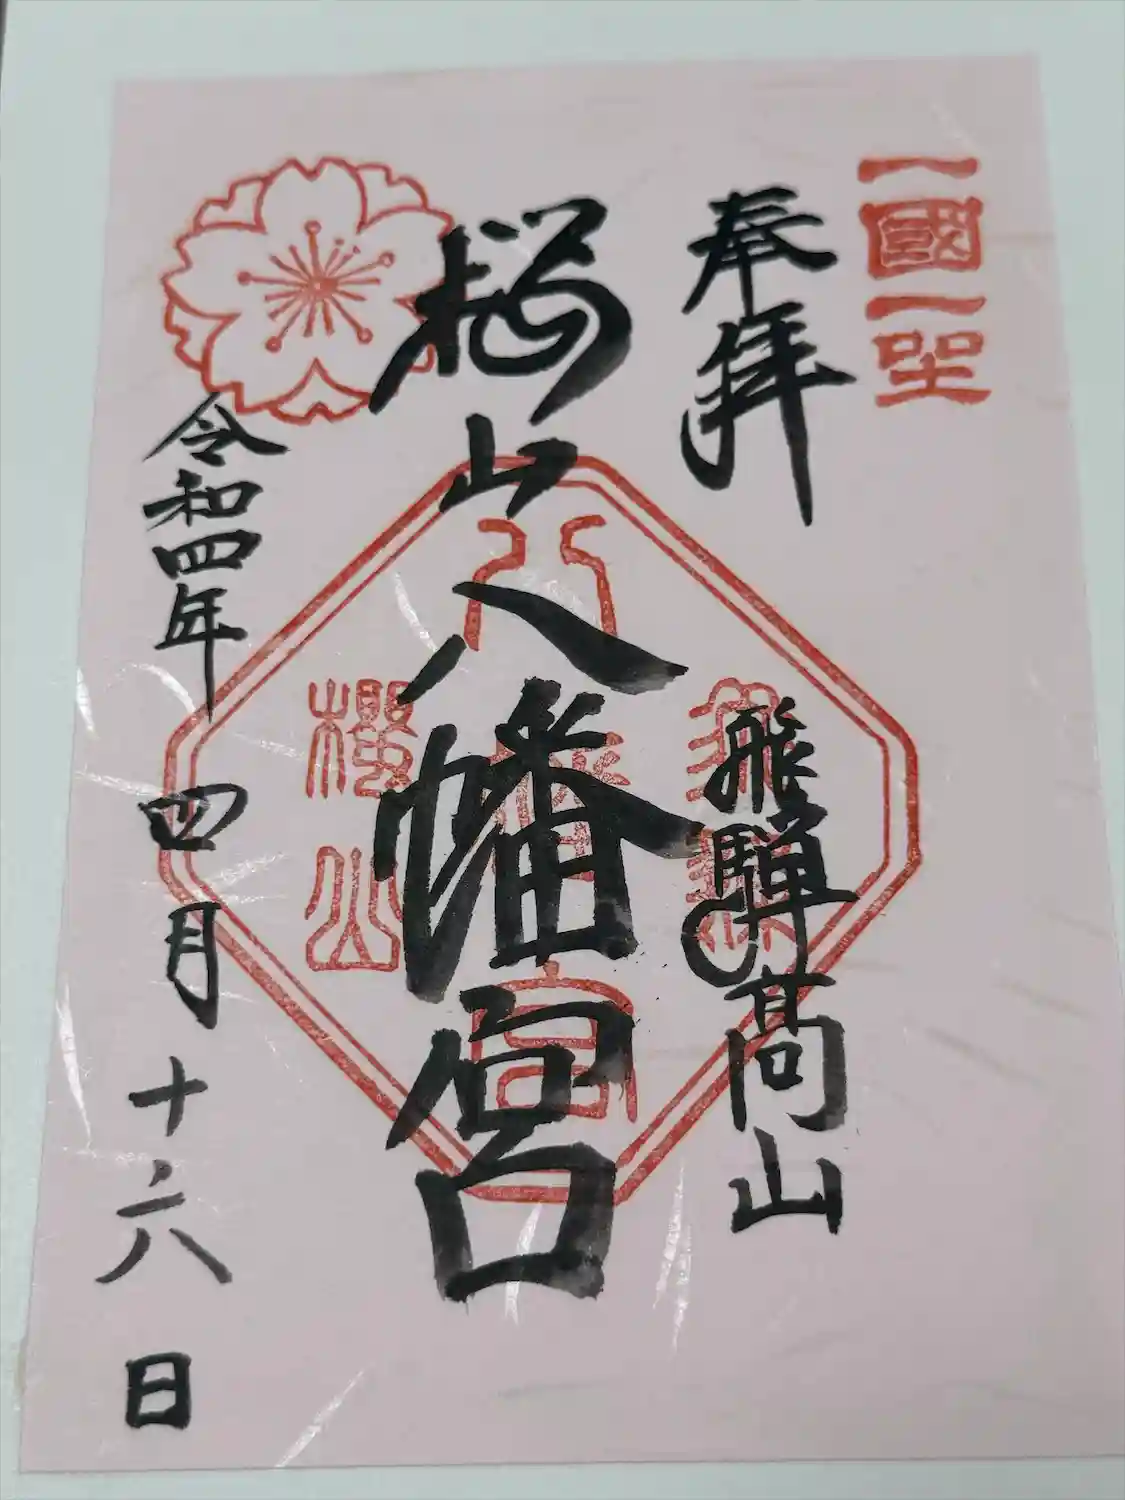 一國一社
奉拝
飛騨高山
桜山八幡宮
飛騨
八幡宮
櫻山
令和四年四月十六日